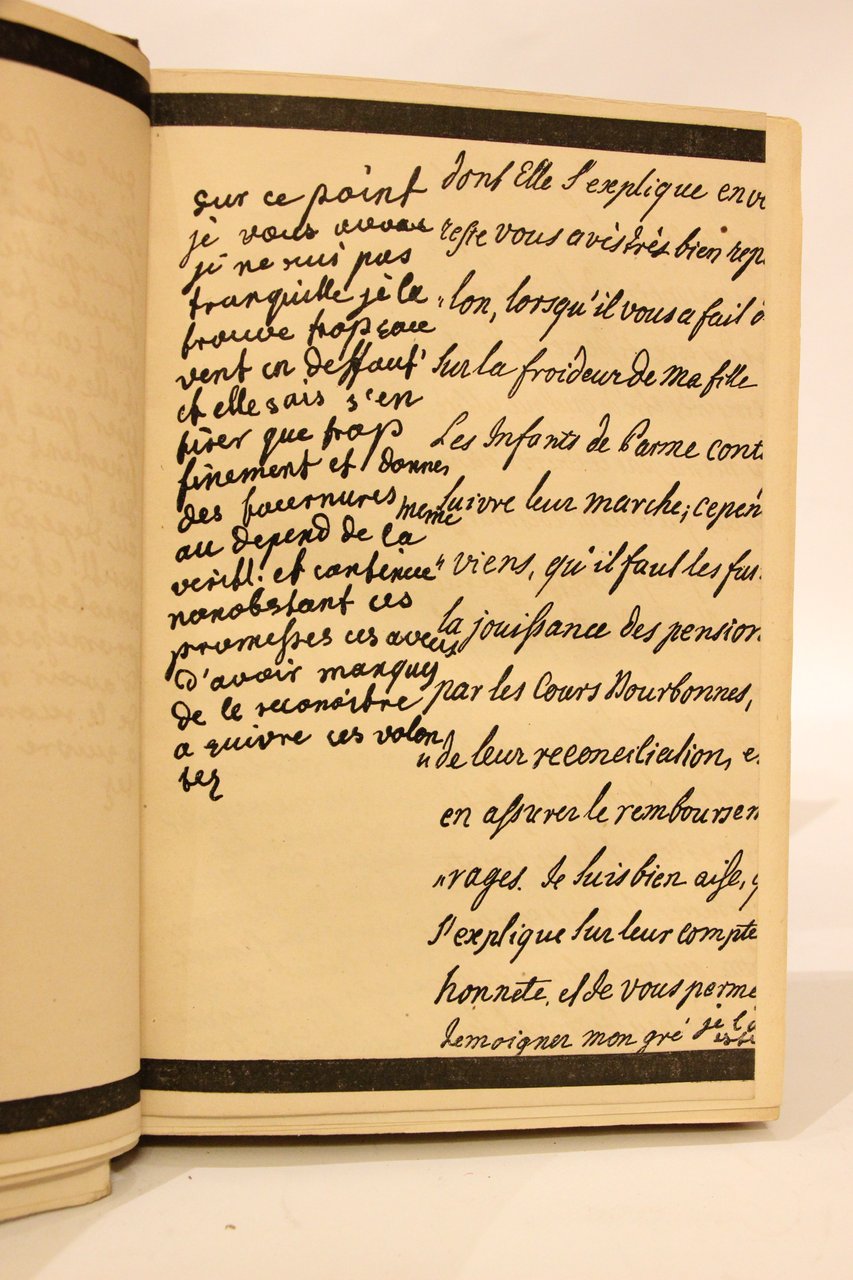 sur ce point
je vous avoue
je ne suis pas
tranquille je la
trouve trop sou
vent en deffaut
et elle sais s'en
tirer que trop
finement et donner
des tournures meme
au depend de la
verité. et continue
nonobstant ces
promesses ces aveux
d'avoir manquy
de le reconoitre
a suivre ces volon
tez
dont Elle s'explique env
reste vous avés très bien rep
„lon, lorsqu'il vous a fait
sur la froideur de ma fille
Les Infants de Parme cont
suivre leur marche; cepen
„viens, qu'il faut les
la jouissance des pension
par les Cours Bourbonnes,
„de leur reconciliation, e
en assurer le remboursem
„rages. Je suis bien aise, q
s'explique sur leur compte
honnete, et de vous perme
temoigner mon gré je l'a